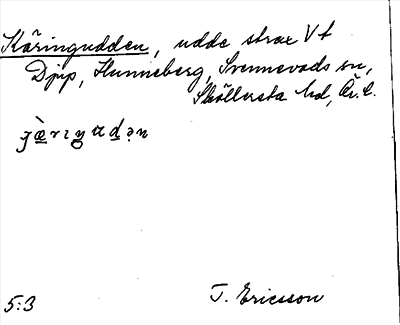 Käringudden, udde strax V t
Djip, Hunneberg, Svennevads sn,
Sköllersta hd, Ör. l.
5:3 T. Ericsson